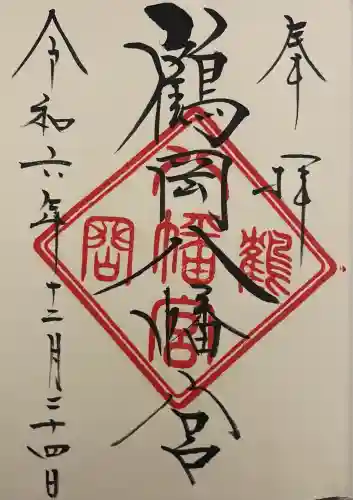 奉拝
鶴岡八幡宮
令和六年十二月二十四日
鶴
八幡宮
岡